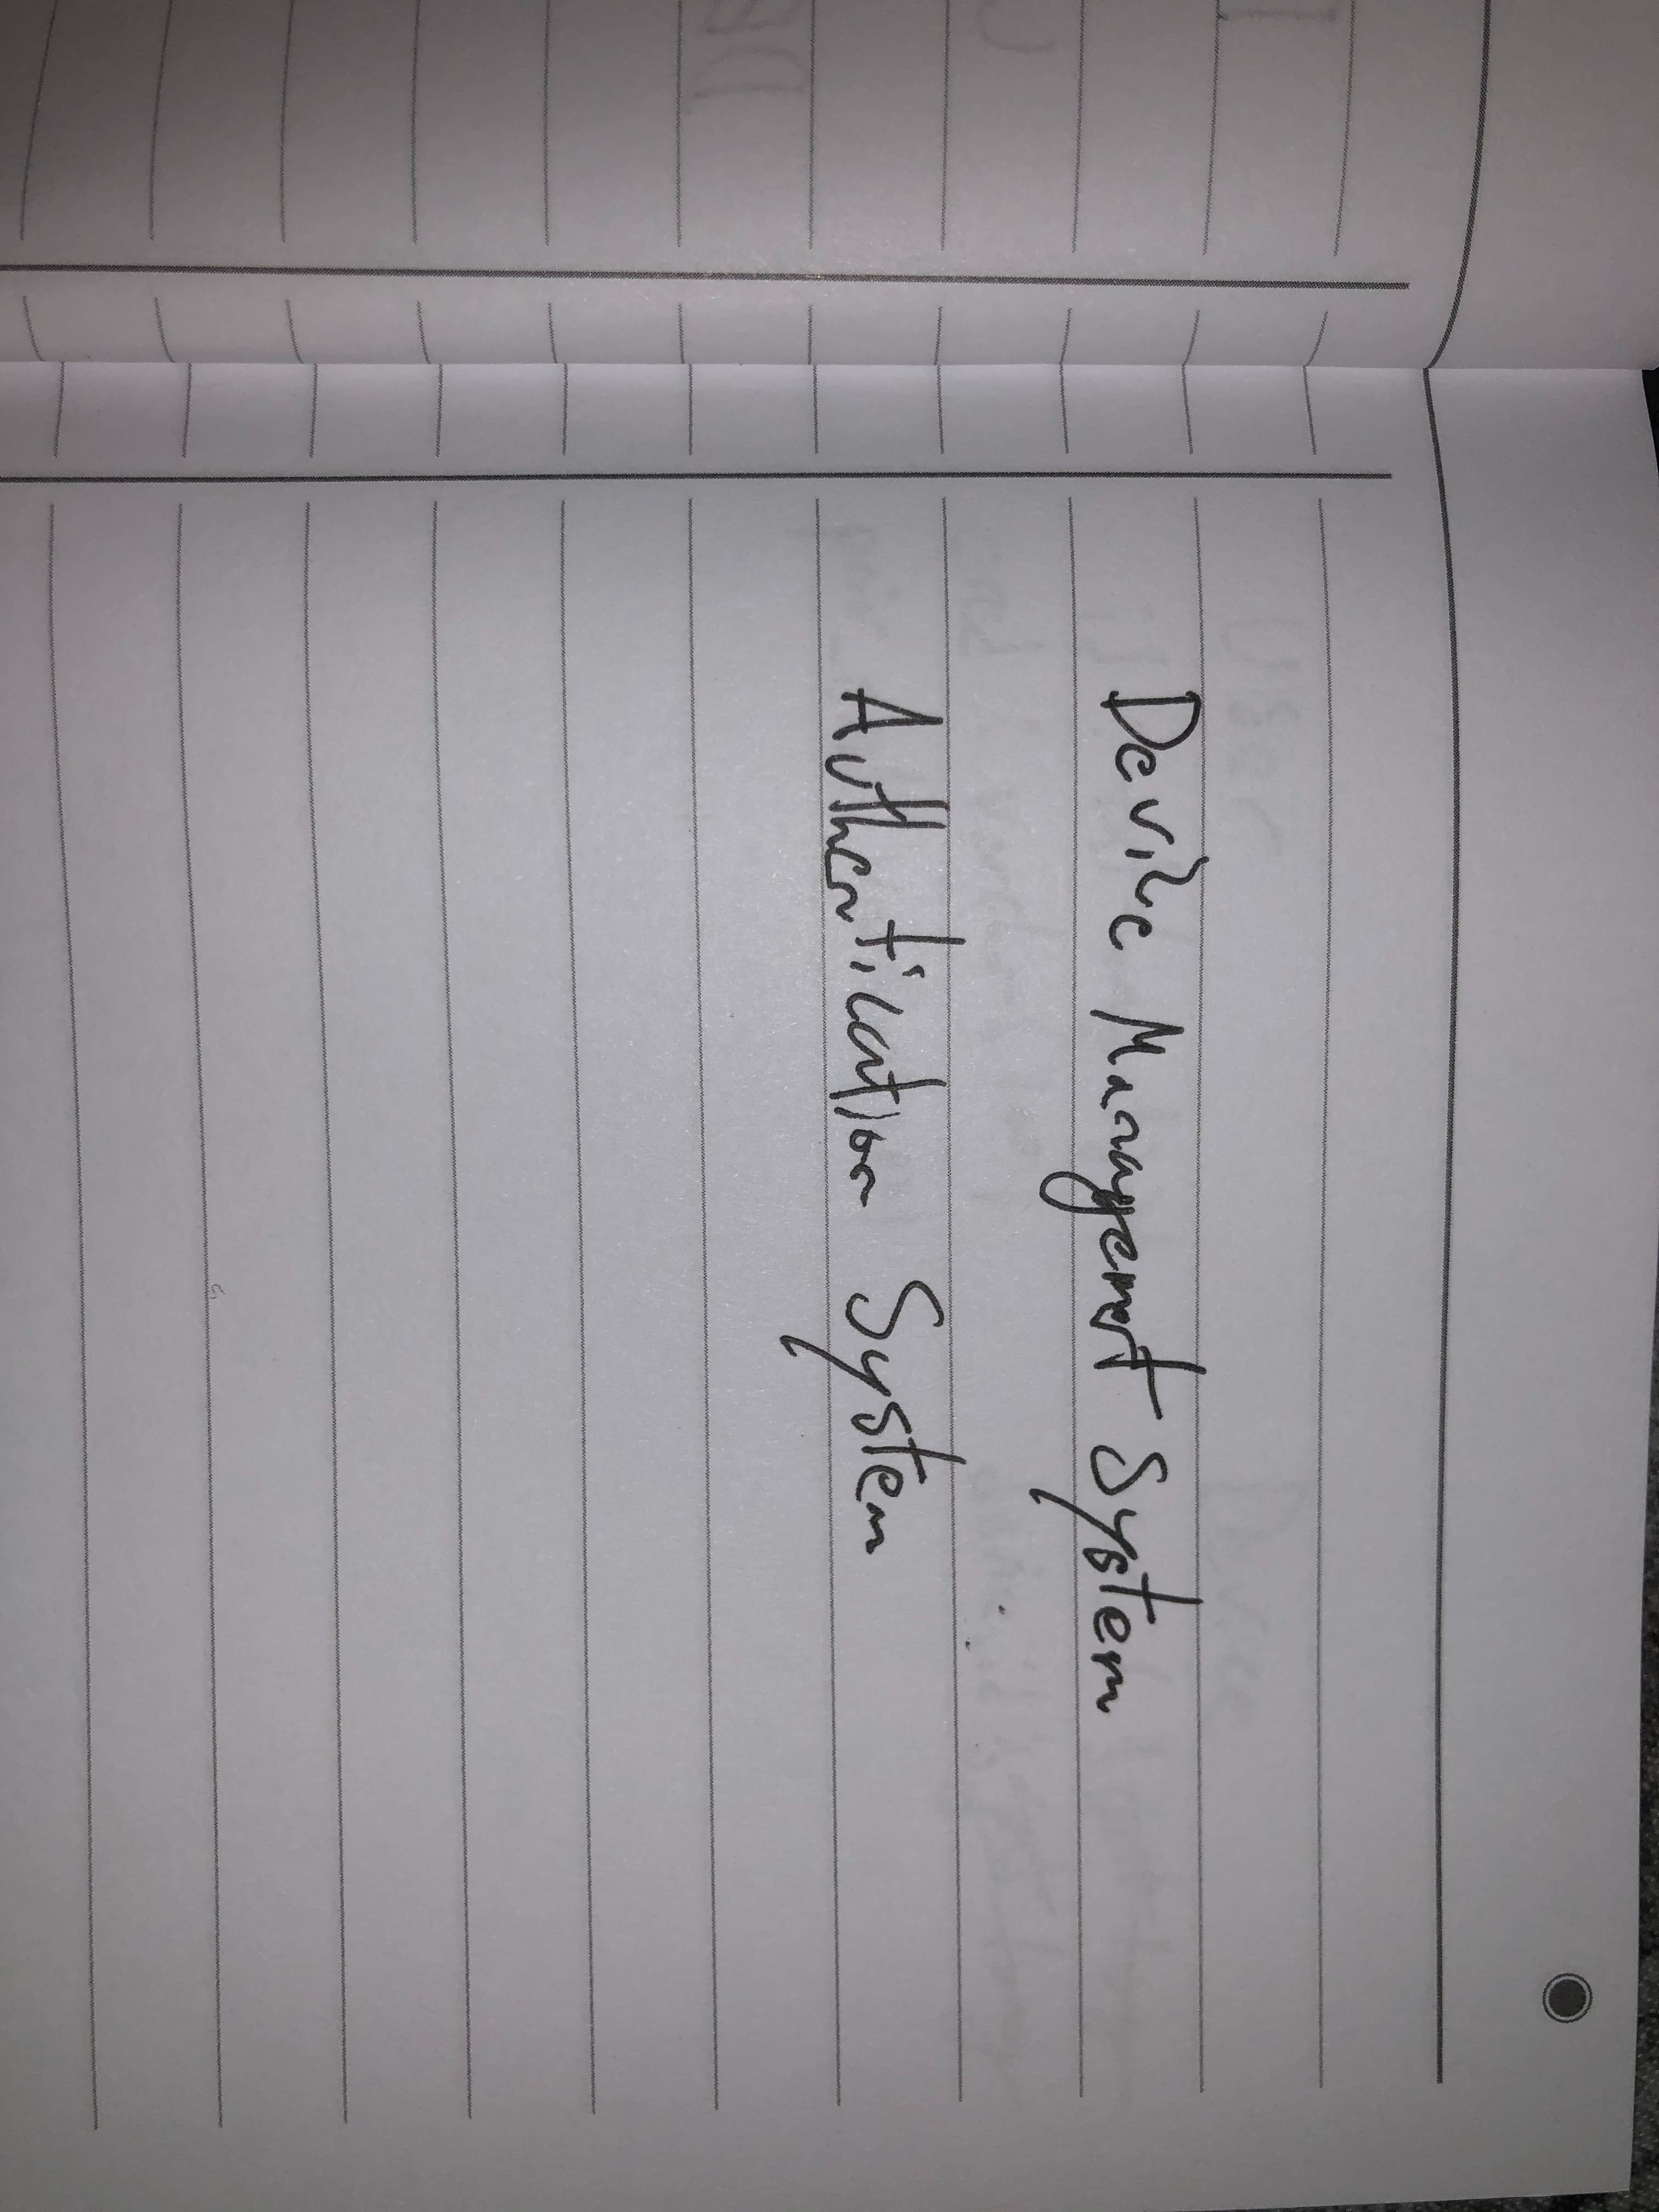 Device Management System
Authentication System